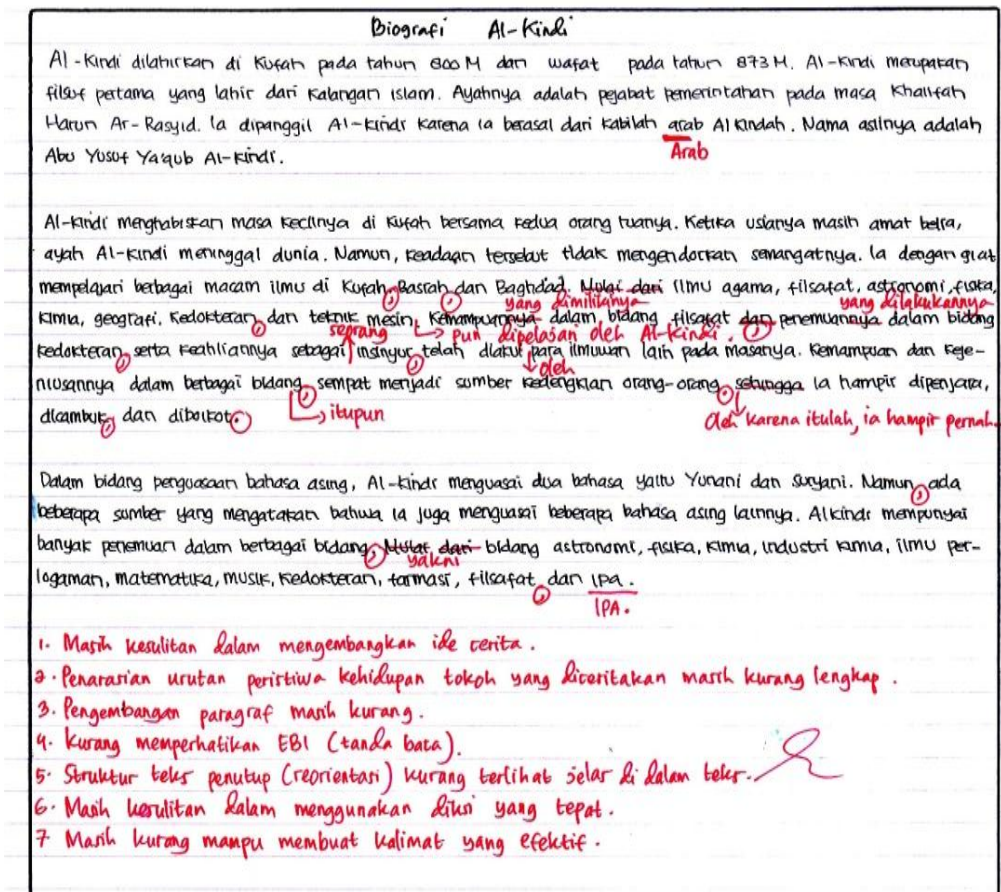 Biografi Al-Kindi
Al-Kindi dilahirkan di Kufah pada tahun 800 M dan wafat pada tahun 873 M. Al-Kindi merupakan
filsuf pertama yang lahir dari kalangan islam. Ayahnya adalah pejabat pemerintahan pada masa Khalifah
Harun Ar-Rasyid. Ia dipanggil Al-Kindi karena ia berasal dari kabilah arab Al Kindah. Nama aslinya adalah
Arab
Abu Yusuf Ya'qub Al-Kindi.
Al-Kindi menghabiskan masa kecilnya di Kufah bersama kedua orang tuanya. Ketika usianya masih amat belia,
ayah Al-Kindi meninggal dunia. Namun, keadaan tersebut tidak mengendorkan semangatnya. Ia dengan giat
mempelajari berbagai macam ilmu di Kufah, Basrah, dan Baghdad. Mulai dari ilmu agama, filsafat, astronomi, fisika,
yang dimilikinya yang dilakukannya
kimia, geografi, kedokteran, dan teknik mesin, Kemampuannya dalam bidang filsafat dan penemuannya dalam bidang
seorang pun dipelajari oleh Al-Kindi.
kedokteran, serta keahliannya sebagai insinyur, telah diakui para ilmuwan lain pada masanya. Kemampuan dan keje-
oleh
niusannya dalam berbagai bidang, sempat menjadi sumber kedengkian orang-orang, sehingga ia hampir dipenjara,
dicambuk, dan diboikot.
itupun
Oleh karena itulah, ia hampir pernah.
Dalam bidang penguasaan bahasa asing, Al-Kindi menguasai dua bahasa yaitu Yunani dan Suryani. Namun, ada
beberapa sumber yang mengatakan bahwa ia juga menguasai beberapa bahasa asing lainnya. Alkindi mempunyai
banyak penemuan dalam berbagai bidang, Mulai dari bidang astronomi, fisika, kimia, industri kimia, ilmu per-
yakni
logaman, matematika, musik, kedokteran, farmasi, filsafat, dan ipa.
IPA.
1. Masih kesulitan dalam mengembangkan ide cerita.
2. Penarasian urutan peristiwa kehidupan tokoh yang diceritakan masih kurang lengkap.
3. Pengembangan paragraf masih kurang.
4. Kurang memperhatikan EBI (tanda baca).
5. Struktur teks penutup (reorientasi) kurang terlihat jelas di dalam teks.
6. Masih kesulitan dalam menggunakan diksi yang tepat.
7 Masih kurang mampu membuat kalimat yang efektif.